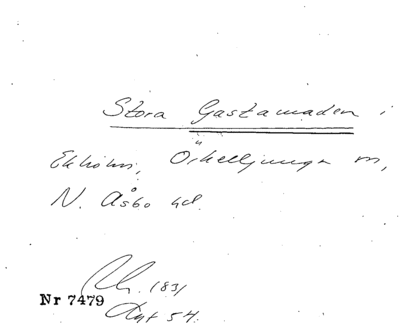 Stora Gastamaden i
Ekholm, Örkelljunga sn,
N. Åsbo hd.
1831
Nr 7479
Akt 54.